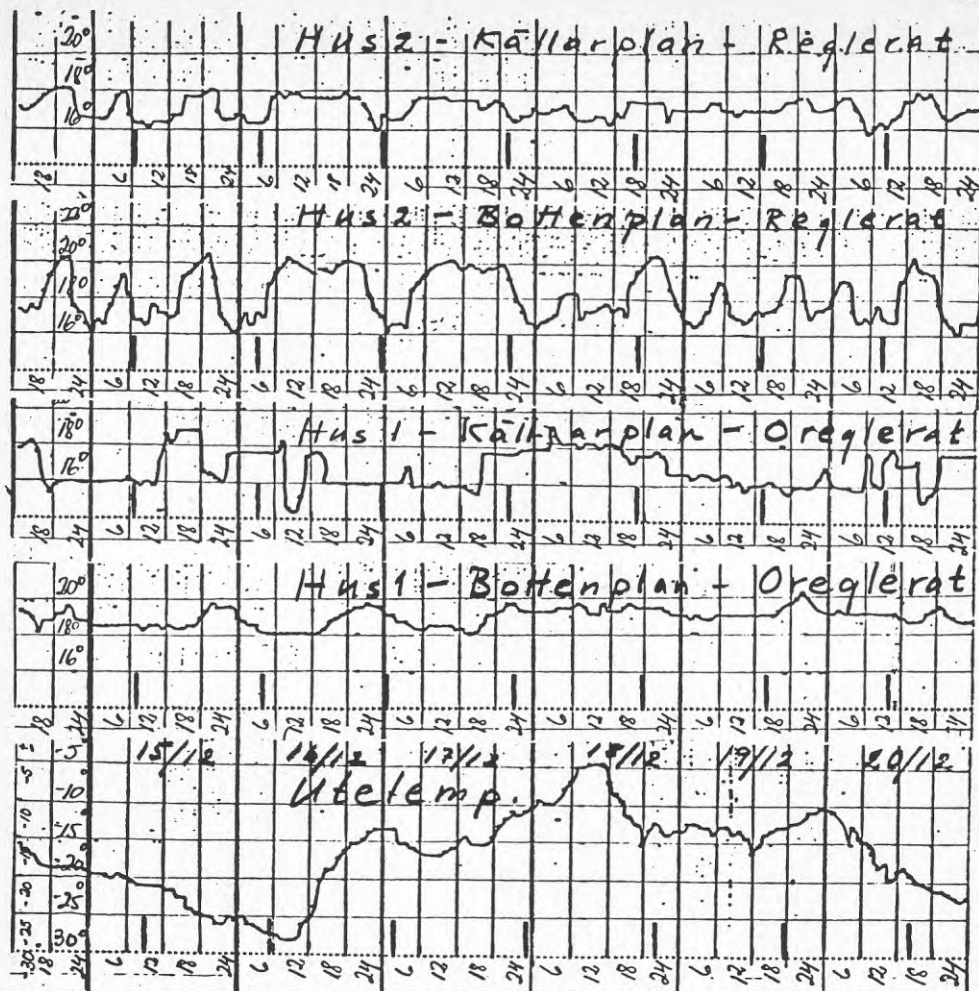 Hus 2 - Källarplan - Reglerat
20°
18°
16°
18 6 12 18 24 6 12 18 24 6 12 18 24 6 12 18 24 6 12 18 24 6 12 18 24
Hus 2 - Bottenplan - Reglerat
22°
20°
18°
16°
18 24 6 12 18 24 6 12 18 24 6 12 18 24 6 12 18 24 6 12 18 24 6 12 18 24
Hus 1 - Källarplan - Oreglerat
18°
16°
18 24 6 12 18 24 6 12 18 24 6 12 18 24 6 12 18 24 6 12 18 24 6 12 18 24
Hus 1 - Bottenplan - Oreglerat
20°
18°
16°
18 24 6 12 18 24 6 12 18 24 6 12 18 24 6 12 18 24 6 12 18 24 6 12 18 24
15/12 16/12 17/12 18/12 19/12 20/12
Utetemp.
-5 -5°
-10 -10
-15 -15
-20 -20°
-25 -25°
-30 30°
18 24 6 12 18 24 6 12 18 24 6 12 18 24 6 12 18 24 6 12 18 24 6 12 18 24